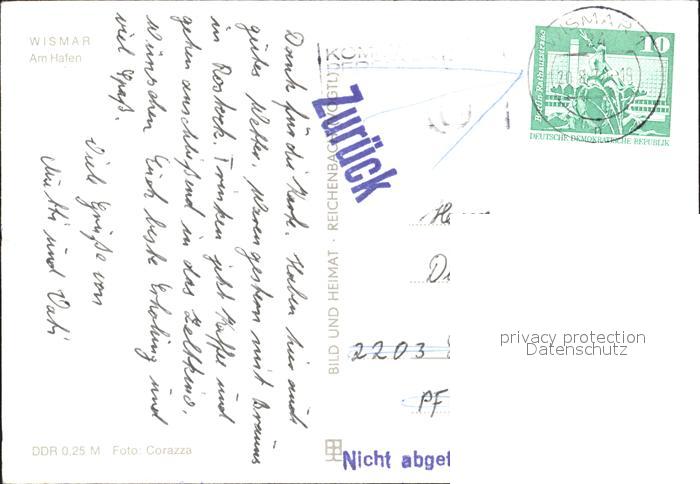 WISMAR
Am Hafen
Dank für die Karte. Haben hier auch
gutes Wetter. Waren gestern mit Brauns
in Rostock. Trinken jetzt Kaffee und
gehen anschließend in das Zeltkino.
Wünschen Euch beste Erholung und
viel Spaß.
Viele Grüße von
Mutti und Vati
DDR 0,25 M Foto: Corazza
BILD UND HEIMAT · REICHENBACH (VOGTL)
Zurück
WISMAR
10
Berlin Rathausstraße
DEUTSCHE DEMOKRATISCHE REPUBLIK
2203
PF
Nicht abgef
privacy protection
Datenschutz